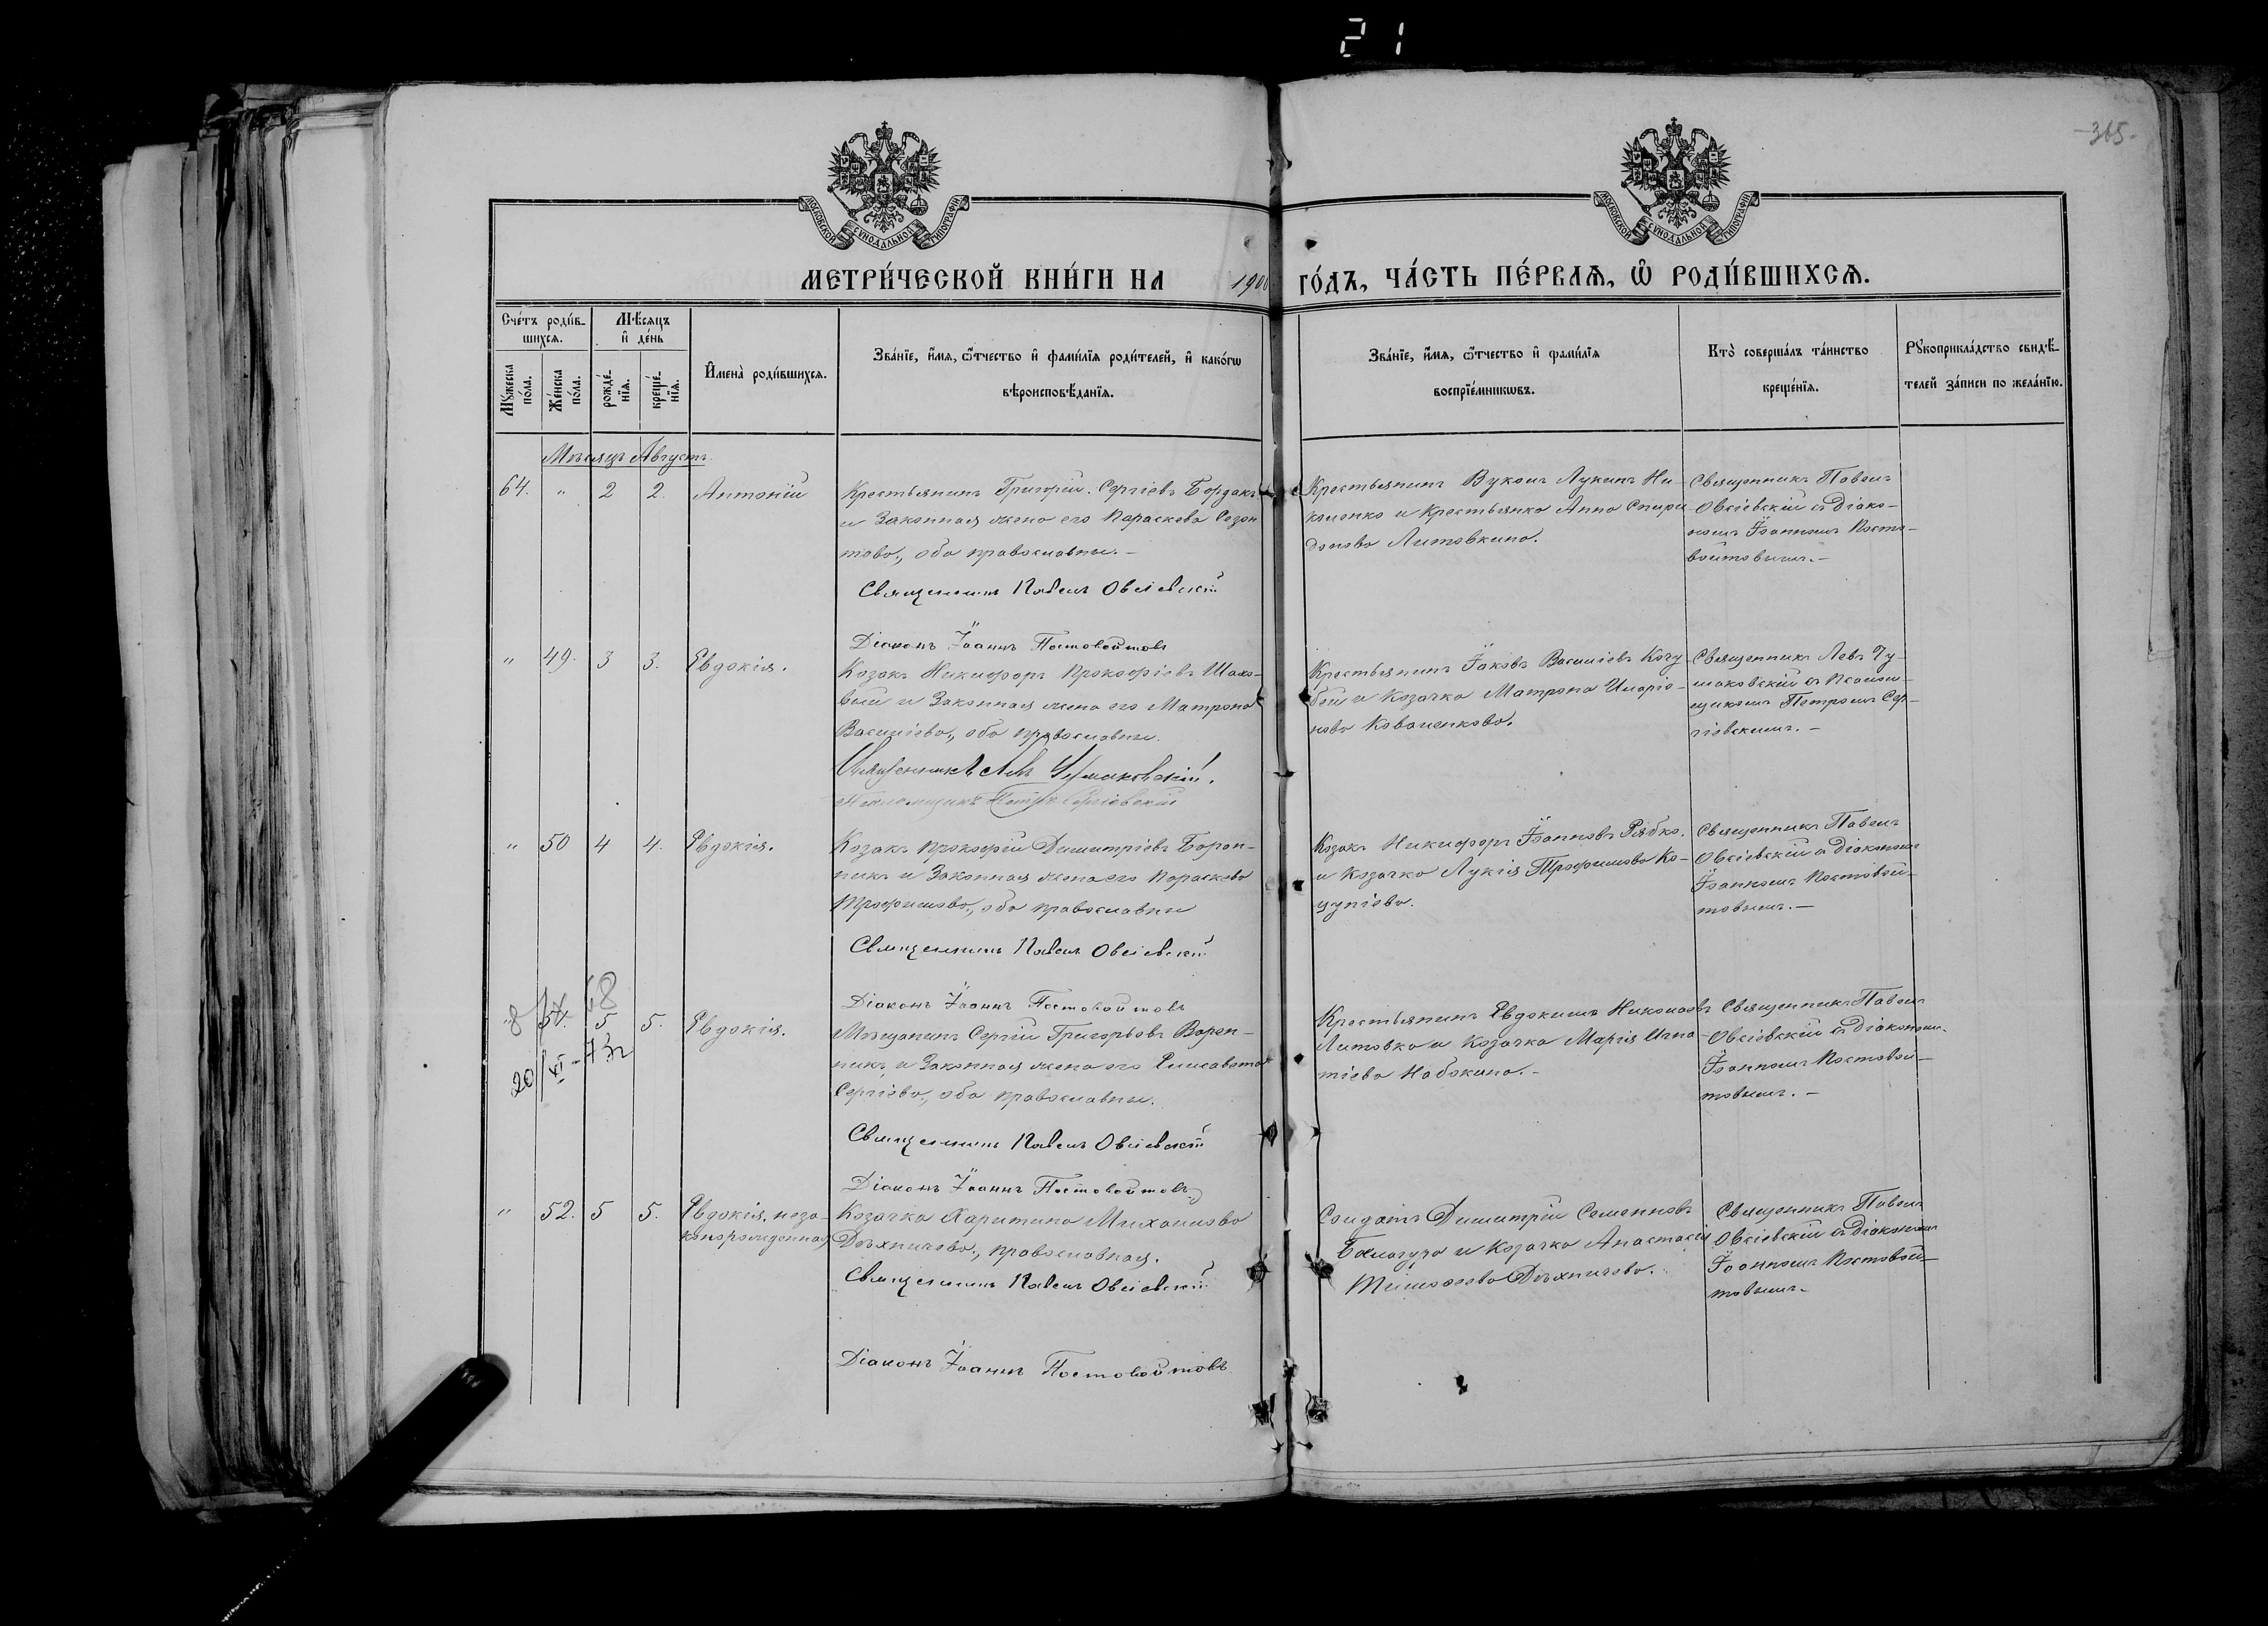 21
-365-
МОСКОВСКОЙ СУНОДАЛЬНОЙ ТИПОГРАФІИ
МОСКОВСКОЙ СУНОДАЛЬНОЙ ТИПОГРАФІИ
МЕТРИ́ЧЕСКОЙ КНИ́ГИ НА 1900 ГО́ДЪ, ЧА́СТЬ ПЕ́РВАЯ, Ѡ РОДИ́ВШИХСЯ.
Сче́тъ роди́в-
шихся.
Мꙋ́жеска по́ла.
Же́нска по́ла.
Мѣ́сяцъ и де́нь
рожде́-
нїя.
креще́-
нїя.
Имена̀ роди́вшихся.
Зва́нїе, и́мя, ѻ́тчество и фами́лїя роди́телей, и како́гѡ
вѣроисповѣ́данїя.
Зва́нїе, и́мя, ѻ́тчество и фами́лїя
воспрїе́мникѡвъ.
Кто̀ соверша́лъ та́инство
креще́нїя.
Рꙋкоприкла́дство свидѣ́-
телей за́писи по жела́нїю.
Мѣсяцъ Августъ.
64. " 2 2. Антоній
Крестьянинъ Григорій Сергіевъ Бордакъ
и Законная жена его Параскева Созон
това, оба православны. –
Священникъ Павелъ Овсіевскій
Діаконъ Іоаннъ Постовойтовъ
Крестьянинъ Вуколъ Лукинъ Ни-
коленко и Крестьянка Анна Спири
донова Литовкина.
Священникъ Павелъ
Овсіевскій съ діако-
номъ Іоанномъ Посто-
войтовымъ. –
" 49. 3 3. Евдокія.
Козакъ Никифоръ Прокофіевъ Шапо-
вал и Законная жена его Матрона
Василіева, оба православны.
Священникъ Левъ Чумаковскій.
Псаломщикъ Петръ Сергіевскій
Крестьянинъ Іаковъ Василіевъ Кочу-
бей и Козачка Матрона Иларіо-
нова Коваленкова.
Священникъ Левъ Чу-
маковскій съ Псалом-
щикомъ Петромъ Сер-
гіевскимъ. –
" 50 4 4. Евдокія.
Козакъ Прокофій Димитріевъ Боран-
никъ и Законная жена его Параскева
Трофимова, оба православны
Священникъ Павелъ Овсіевскій
Діаконъ Іоаннъ Постовойтовъ
Козакъ Никифоръ Іоанновъ Рябко.
и Козачка Лукія Трофимова Ко-
цупіева.
Священникъ Павелъ
Овсіевскій съ діакономъ
Іоанномъ Постовой-
товымъ. –
" 51. 5 5. Евдокія.
20/XI-73г
Мѣщанинъ Сергій Григорьевъ Варен-
никъ и Законная жена его Елисавета
Сергіева, оба православны.
Священникъ Павелъ Овсіевскій
Діаконъ Іоаннъ Постовойтовъ
Крестьянинъ Евдокимъ Николаевъ
Литовка и Козачка Марія Игна
тіева Набокина. –
Священникъ Павелъ
Овсіевскій съ діакономъ
Іоанномъ Постовой-
товымъ. –
" 52. 5 5. Евдокія. неза-
коннорожденная
Козачка Харитина Михаилова
Дѣхничева, православная.
Священникъ Павелъ Овсіевскій
Діаконъ Іоаннъ Постовойтовъ
Солдатъ Димитрій Семенновъ
Балагура и Козачка Анастасія
Тимофеева Дѣхничева.
Священникъ Павелъ
Овсіевскій съ діакономъ
Іоанномъ Постовой-
товымъ.